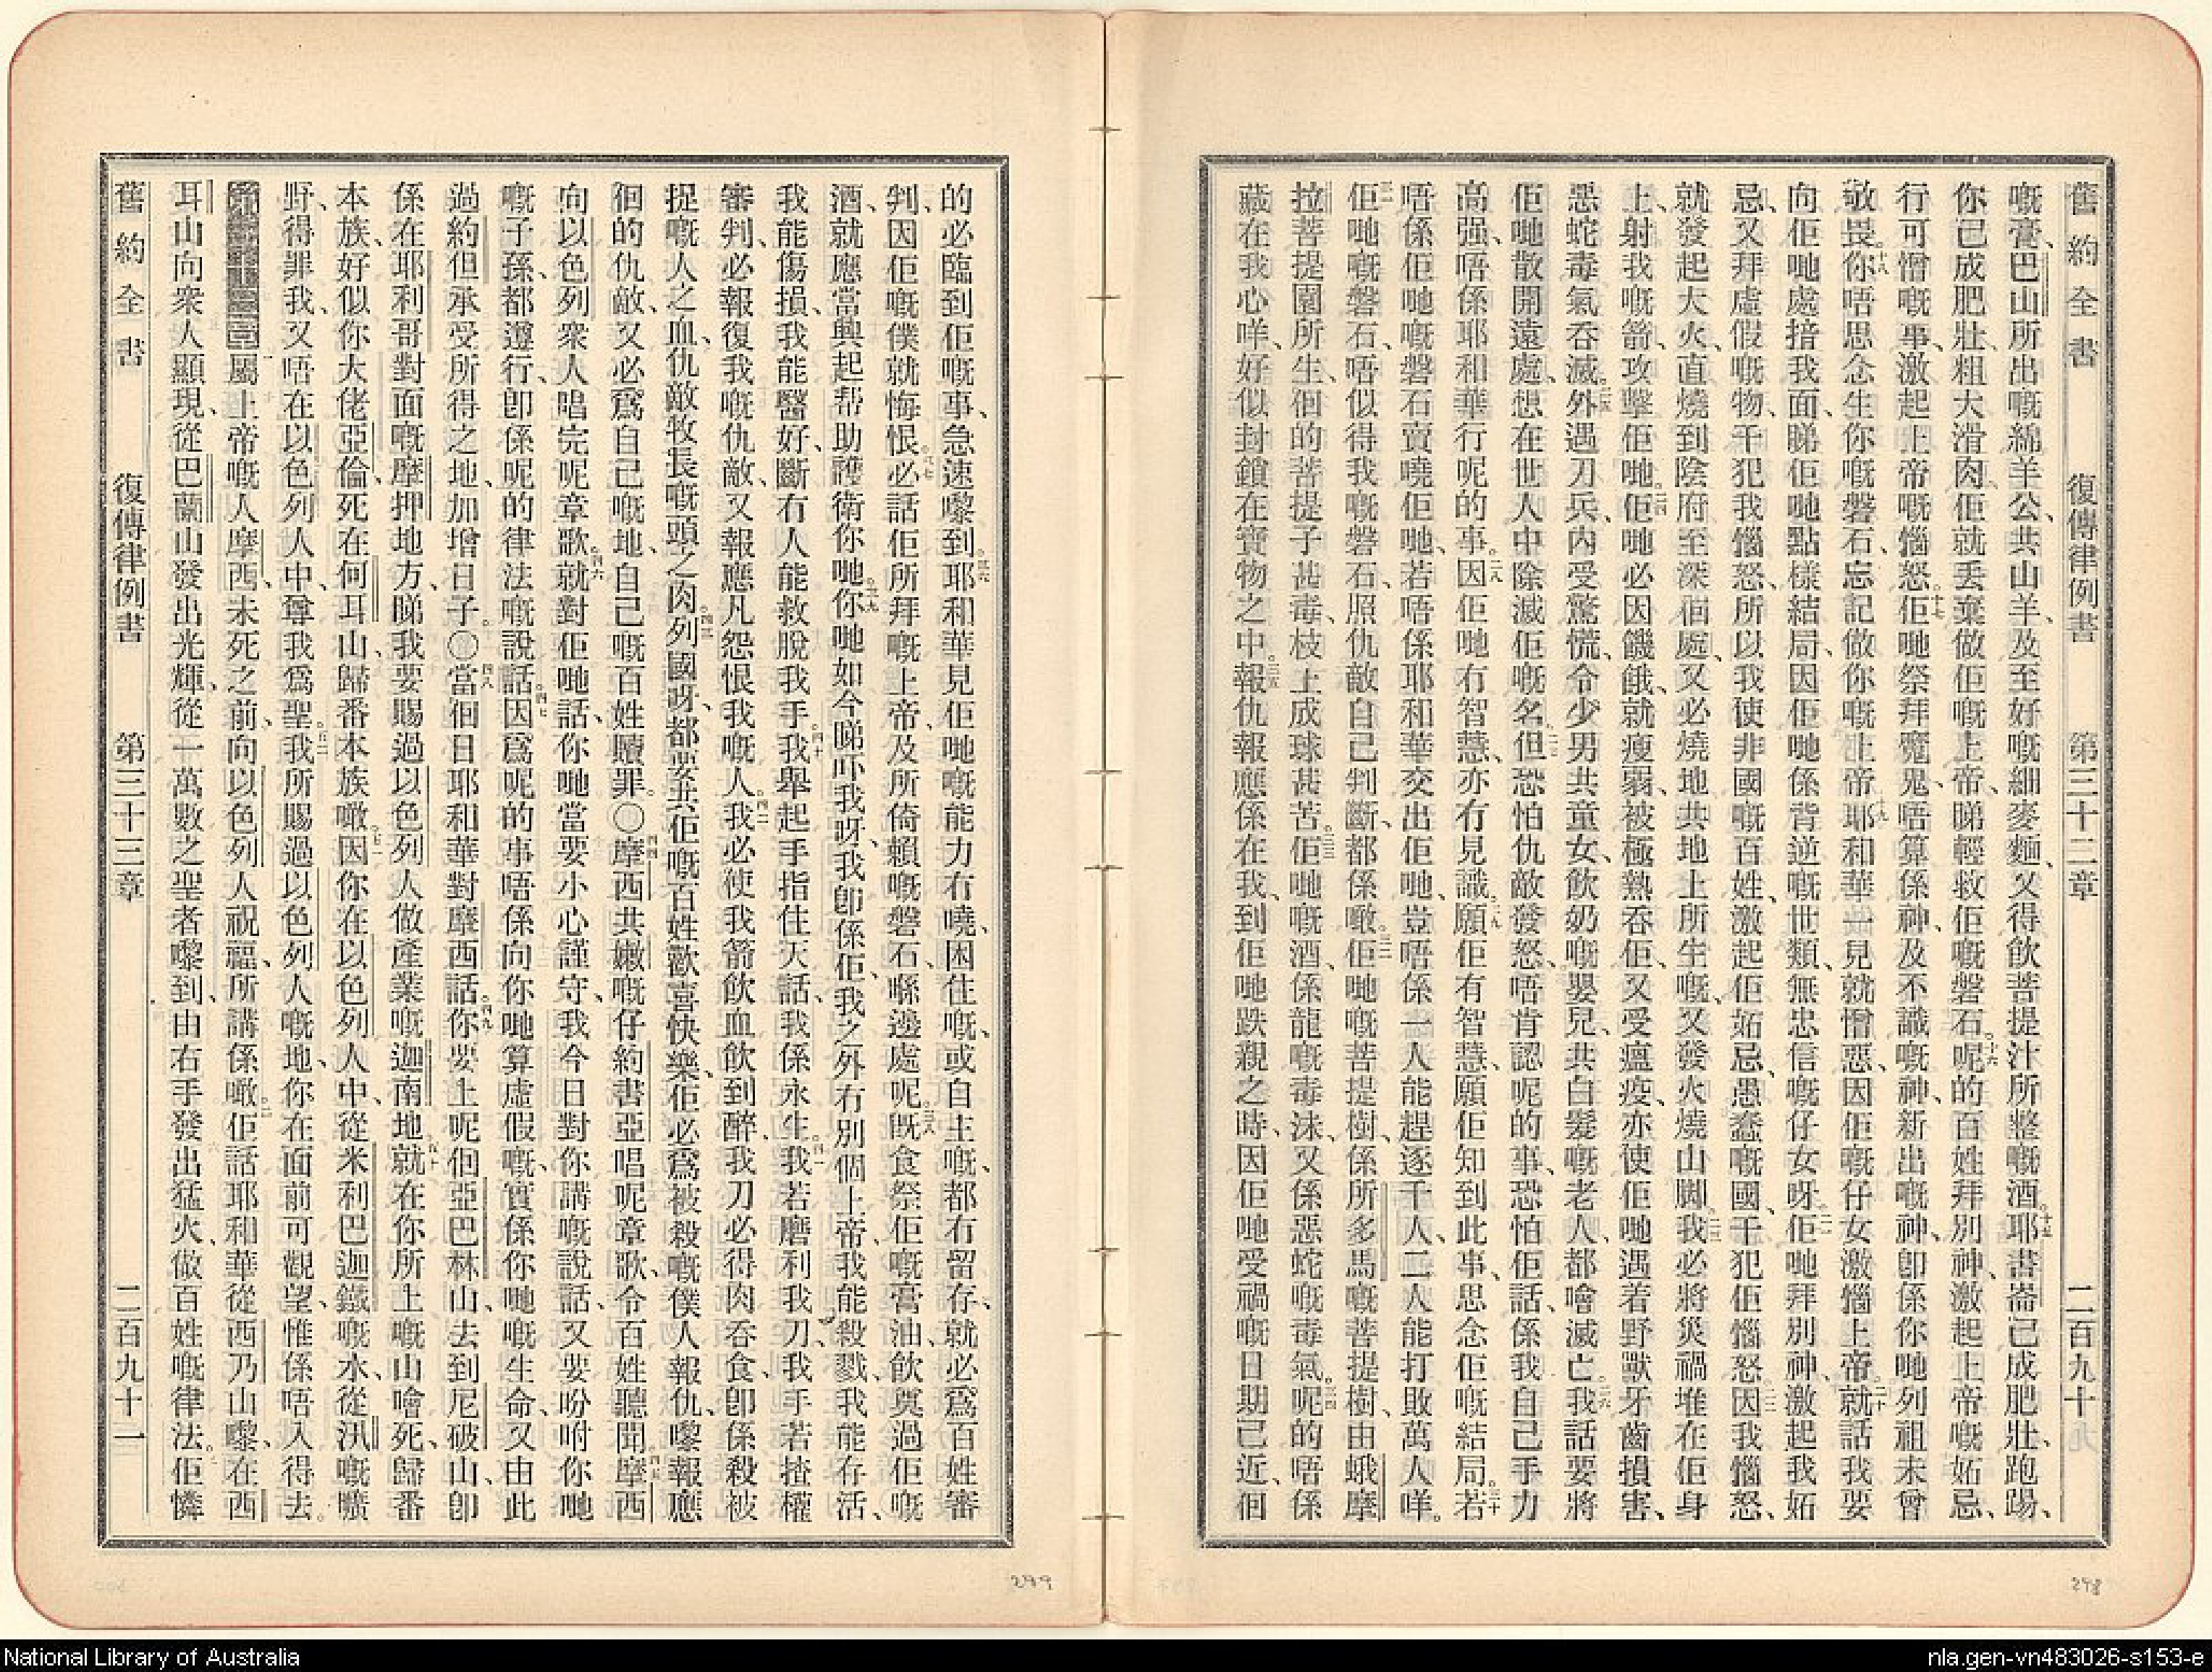 舊約全書 復傳律例書 第三十二章 二百九十
嘅膏、巴山所出嘅綿羊公、共山羊、及至好嘅細麥麵、又得飲菩提汁所整嘅酒。十五耶書崙已成肥壯、跑踢、
你已成肥壯、粗大滑肉、佢就丢棄做佢嘅上帝、睇輕救佢嘅磐石。十六呢的百姓拜別神、激起上帝嘅妬忌、
行可憎嘅事、激起上帝嘅惱怒。十七佢哋祭拜魔鬼、唔算係神、及不識嘅神、新出嘅神、卽係你哋列祖未曾
敬畏。十八你唔思念生你嘅磐石、忘記做你嘅上帝。十九耶和華一見就憎惡、因佢嘅仔女激惱上帝。二十就話我要
向佢哋處揞我面、睇佢哋點樣結局、因佢哋係背逆嘅世類、無忠信嘅仔女呀。二一佢哋拜別神、激起我妬
忌、又拜虛假嘅物、干犯我惱怒、所以我使非國嘅百姓、激起佢妬忌、愚蠢嘅國、干犯佢惱怒。二二因我惱怒、
就發起大火、直燒到陰府至深個處、又必燒地共地上所生嘅、又發火燒山脚。二三我必將災禍堆在佢身
上、射我嘅箭、攻擊佢哋。二四佢哋必因饑餓、就瘦弱、被極熱吞佢、又受瘟疫、亦使佢哋遇着野獸牙齒損害、
惡蛇毒氣吞滅。二五外遇刀兵、內受驚慌、令少男共童女、飲奶嘅嬰兒、共白髮嘅老人、都噲滅亡。二六我話要將
佢哋散開遠處、想在世人中除滅佢嘅名。二七但恐怕仇敵發怒、唔肯認呢的事、恐怕佢話、係我自己手力
高强、唔係耶和華行呢的事。二八因佢哋冇智慧、亦冇見識。二九願佢有智慧、願佢知到此事、思念佢嘅結局。三十若
唔係佢哋嘅磐石賣曉佢哋、若唔係耶和華交出佢哋、豈唔係一人能趕逐千人、二人能打敗萬人咩。
三一佢哋嘅磐石、唔似得我嘅磐石、照仇敵自己判斷、都係噉。三二佢哋嘅菩提樹、係所多馬嘅菩提樹、由蛾摩
拉菩提園所生、個的菩提子甚毒、枝上成球甚苦。三三佢哋嘅酒、係龍嘅毒沫、又係惡蛇嘅毒氣。三四呢的唔係
藏在我心咩、好似封鎖在寶物之中。三五報仇報應係在我、到佢哋跌親之時、因佢哋受禍嘅日期已近、個
298
的必臨到佢嘅事、急速嚟到。三六耶和華見佢哋嘅能力冇曉、困住嘅、或自主嘅、都冇留存、就必爲百姓審
判、因佢嘅僕就悔恨。三七必話佢所拜嘅上帝、及所倚賴嘅磐石、喺邊處呢。三八旣食祭佢嘅膏油、飲奠過佢嘅
酒、就應當興起帮助、護衛你哋。三九你哋如今睇吓我呀、我卽係佢、我之外冇別個上帝、我能殺戮、我能存活、
我能傷損、我能醫好、斷冇人能救脫我手。四十我舉起手指住天話、我係永生。四一我若磨利我刀、我手若揸權
審判、必報復我嘅仇敵、又報應凡怨恨我嘅人。四二我必使我箭飲血飲到醉、我刀必得肉吞食、卽係殺被
捉嘅人之血、仇敵牧長嘅頭之肉。四三列國呀、都要共佢嘅百姓歡喜快樂、佢必爲被殺嘅僕人報仇、嚟報應
個的仇敵、又必爲自己嘅地、自己嘅百姓贖罪。〇四四摩西共嫩嘅仔約書亞唱呢章歌、令百姓聽聞。四五摩西
向以色列衆人唱完呢章歌。四六就對佢哋話、你哋當要小心謹守、我今日對你講嘅說話、又要吩咐你哋
嘅子孫、都遵行、卽係呢的律法嘅說話。四七因爲呢的事唔係向你哋算虛假嘅、實係你哋嘅生命、又由此
過約但承受所得之地、加增日子。〇四八當個日耶和華對摩西話。四九你要上呢個亞巴林山、去到尼破山、卽
係在耶利哥對面嘅摩押地方、睇我要賜過以色列人做產業嘅迦南地。五十就在你所上嘅山噲死、歸番
本族、好似你大佬亞倫、死在何耳山、歸番本族噉。五一因你在以色列人中、從米利巴迦鐵嘅水、從汛嘅曠
野、得罪我、又唔在以色列人中、尊我爲聖。五二我所賜過以色列人嘅地、你在面前可觀望、惟係唔入得去。
第三十三章 一屬上帝嘅人摩西、未死之前、向以色列人祝福、所講係噉。二佢話耶和華從西乃山嚟、在西
耳山向衆人顯現、從巴蘭山發出光輝、從一萬數之聖者嚟到、由右手發出猛火、做百姓嘅律法。三佢憐
舊約全書 復傳律例書 第三十三章 二百九十一
299
National Library of Australia
nla.gen-vn483026-s153-e